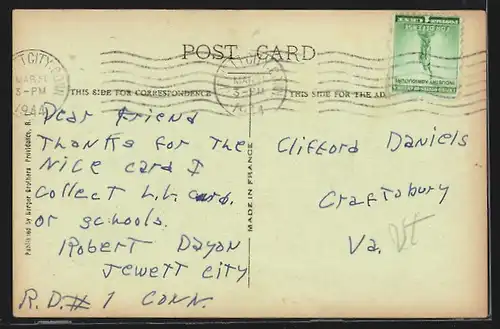 POST CARD
THIS SIDE FOR CORRESPONDENCE
THIS SIDE FOR THE AD
Dear friend
Thanks for the
Nice card I
Collect L.L. card.
or schools.
Robert Dayon
Jewett City
R.D.#1 Conn.
Clifford Daniels
Craftsbury
Va. Vt
MADE IN FRANCE
Published by Berger Brothers Providence, R.
T CITY
MAR
3-PM
1944
MAR
3-PM
FOR DEFENSE
INDUSTRY AGRICULTURE